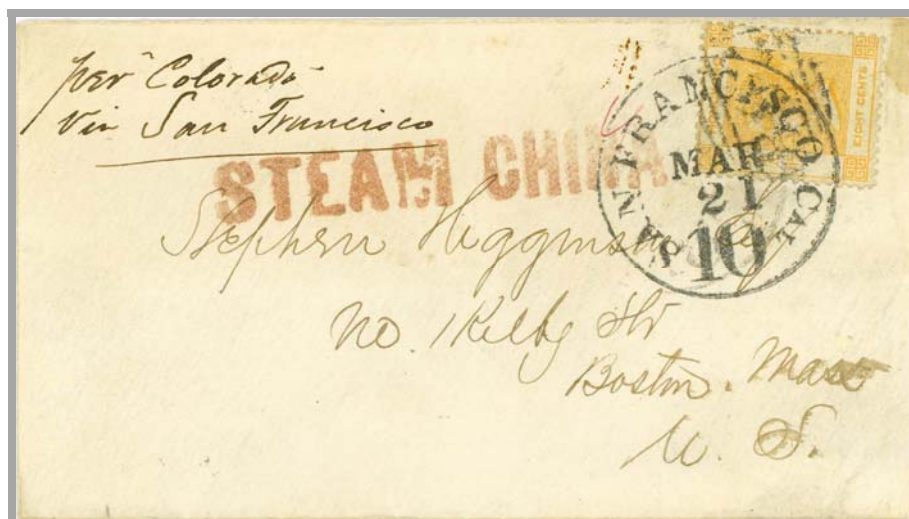 per Colorado
Via San Francisco
STEAM CHINA
SAN FRANCISCO CAL
MAR
21
10
EIGHT CENTS
Stephen Higginson Esq
No. 1 Kilby Str
Boston. Mass
U. S.